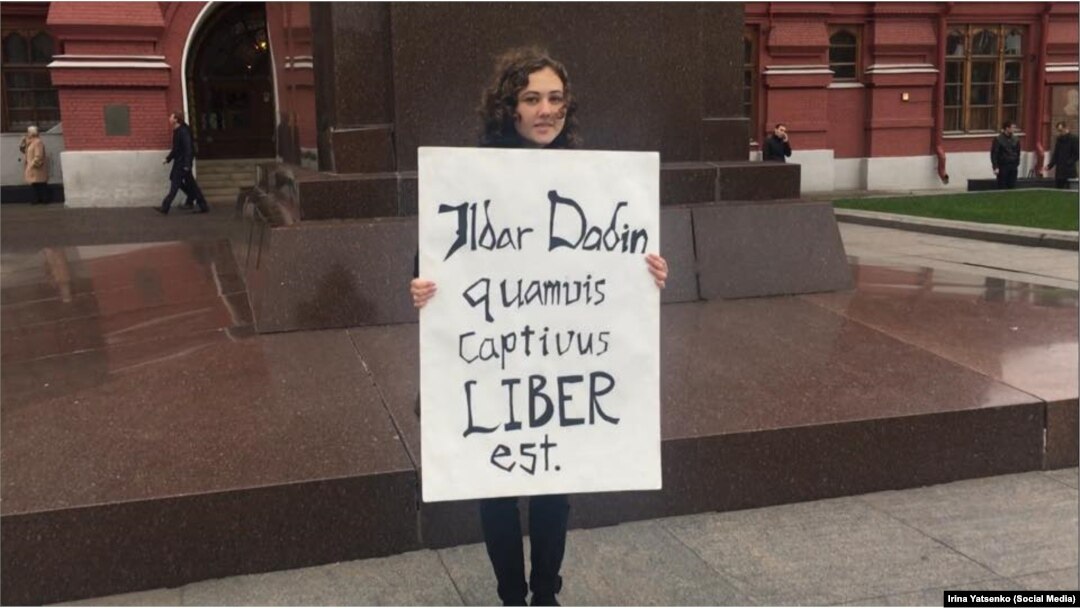 Ildar Dadin
quamvis
captivus
LIBER
est.
Irina Yatsenko (Social Media)